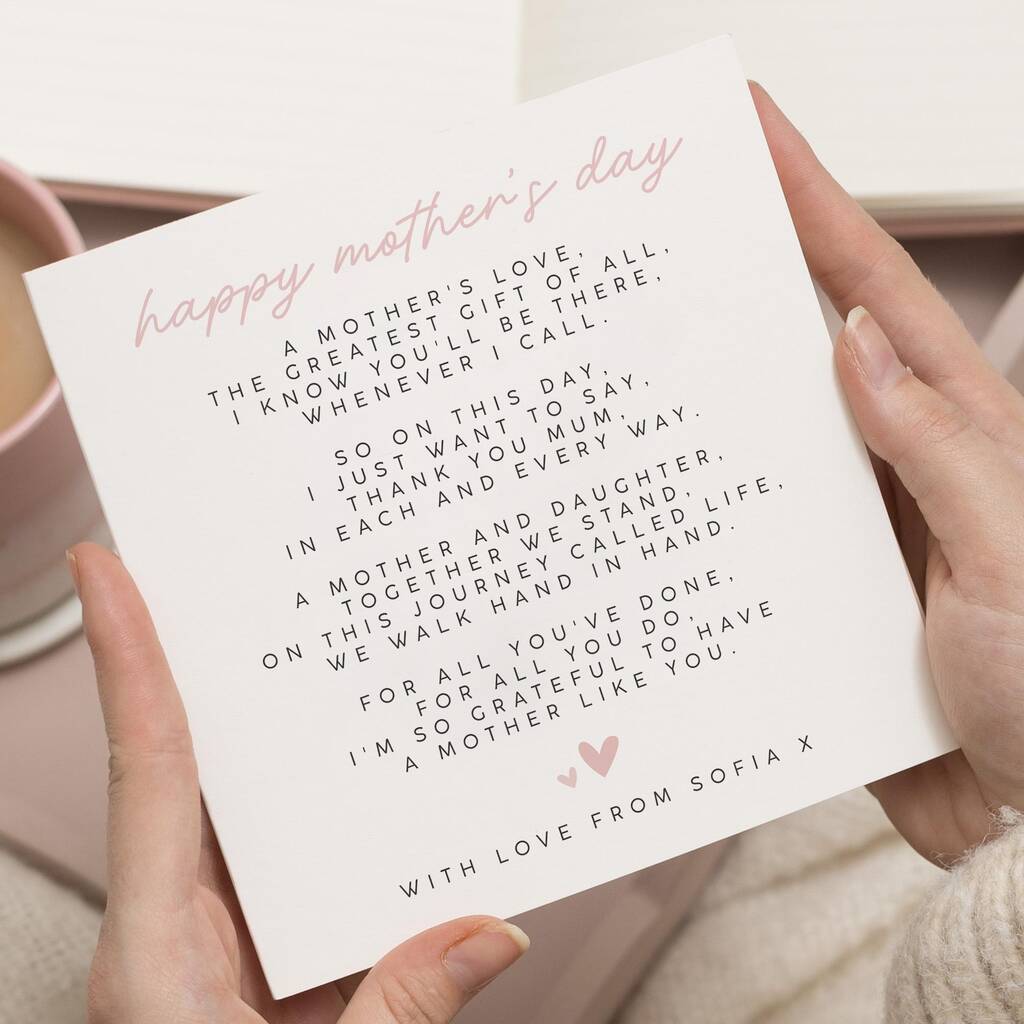 happy mother's day
A MOTHER'S LOVE,
THE GREATEST GIFT OF ALL,
I KNOW YOU'LL BE THERE,
WHENEVER I CALL.
SO ON THIS DAY,
I JUST WANT TO SAY,
THANK YOU MUM,
IN EACH AND EVERY WAY.
A MOTHER AND DAUGHTER,
TOGETHER WE STAND,
ON THIS JOURNEY CALLED LIFE,
WE WALK HAND IN HAND.
FOR ALL YOU'VE DONE,
FOR ALL YOU DO,
I'M SO GRATEFUL TO HAVE
A MOTHER LIKE YOU.
WITH LOVE FROM SOFIA X